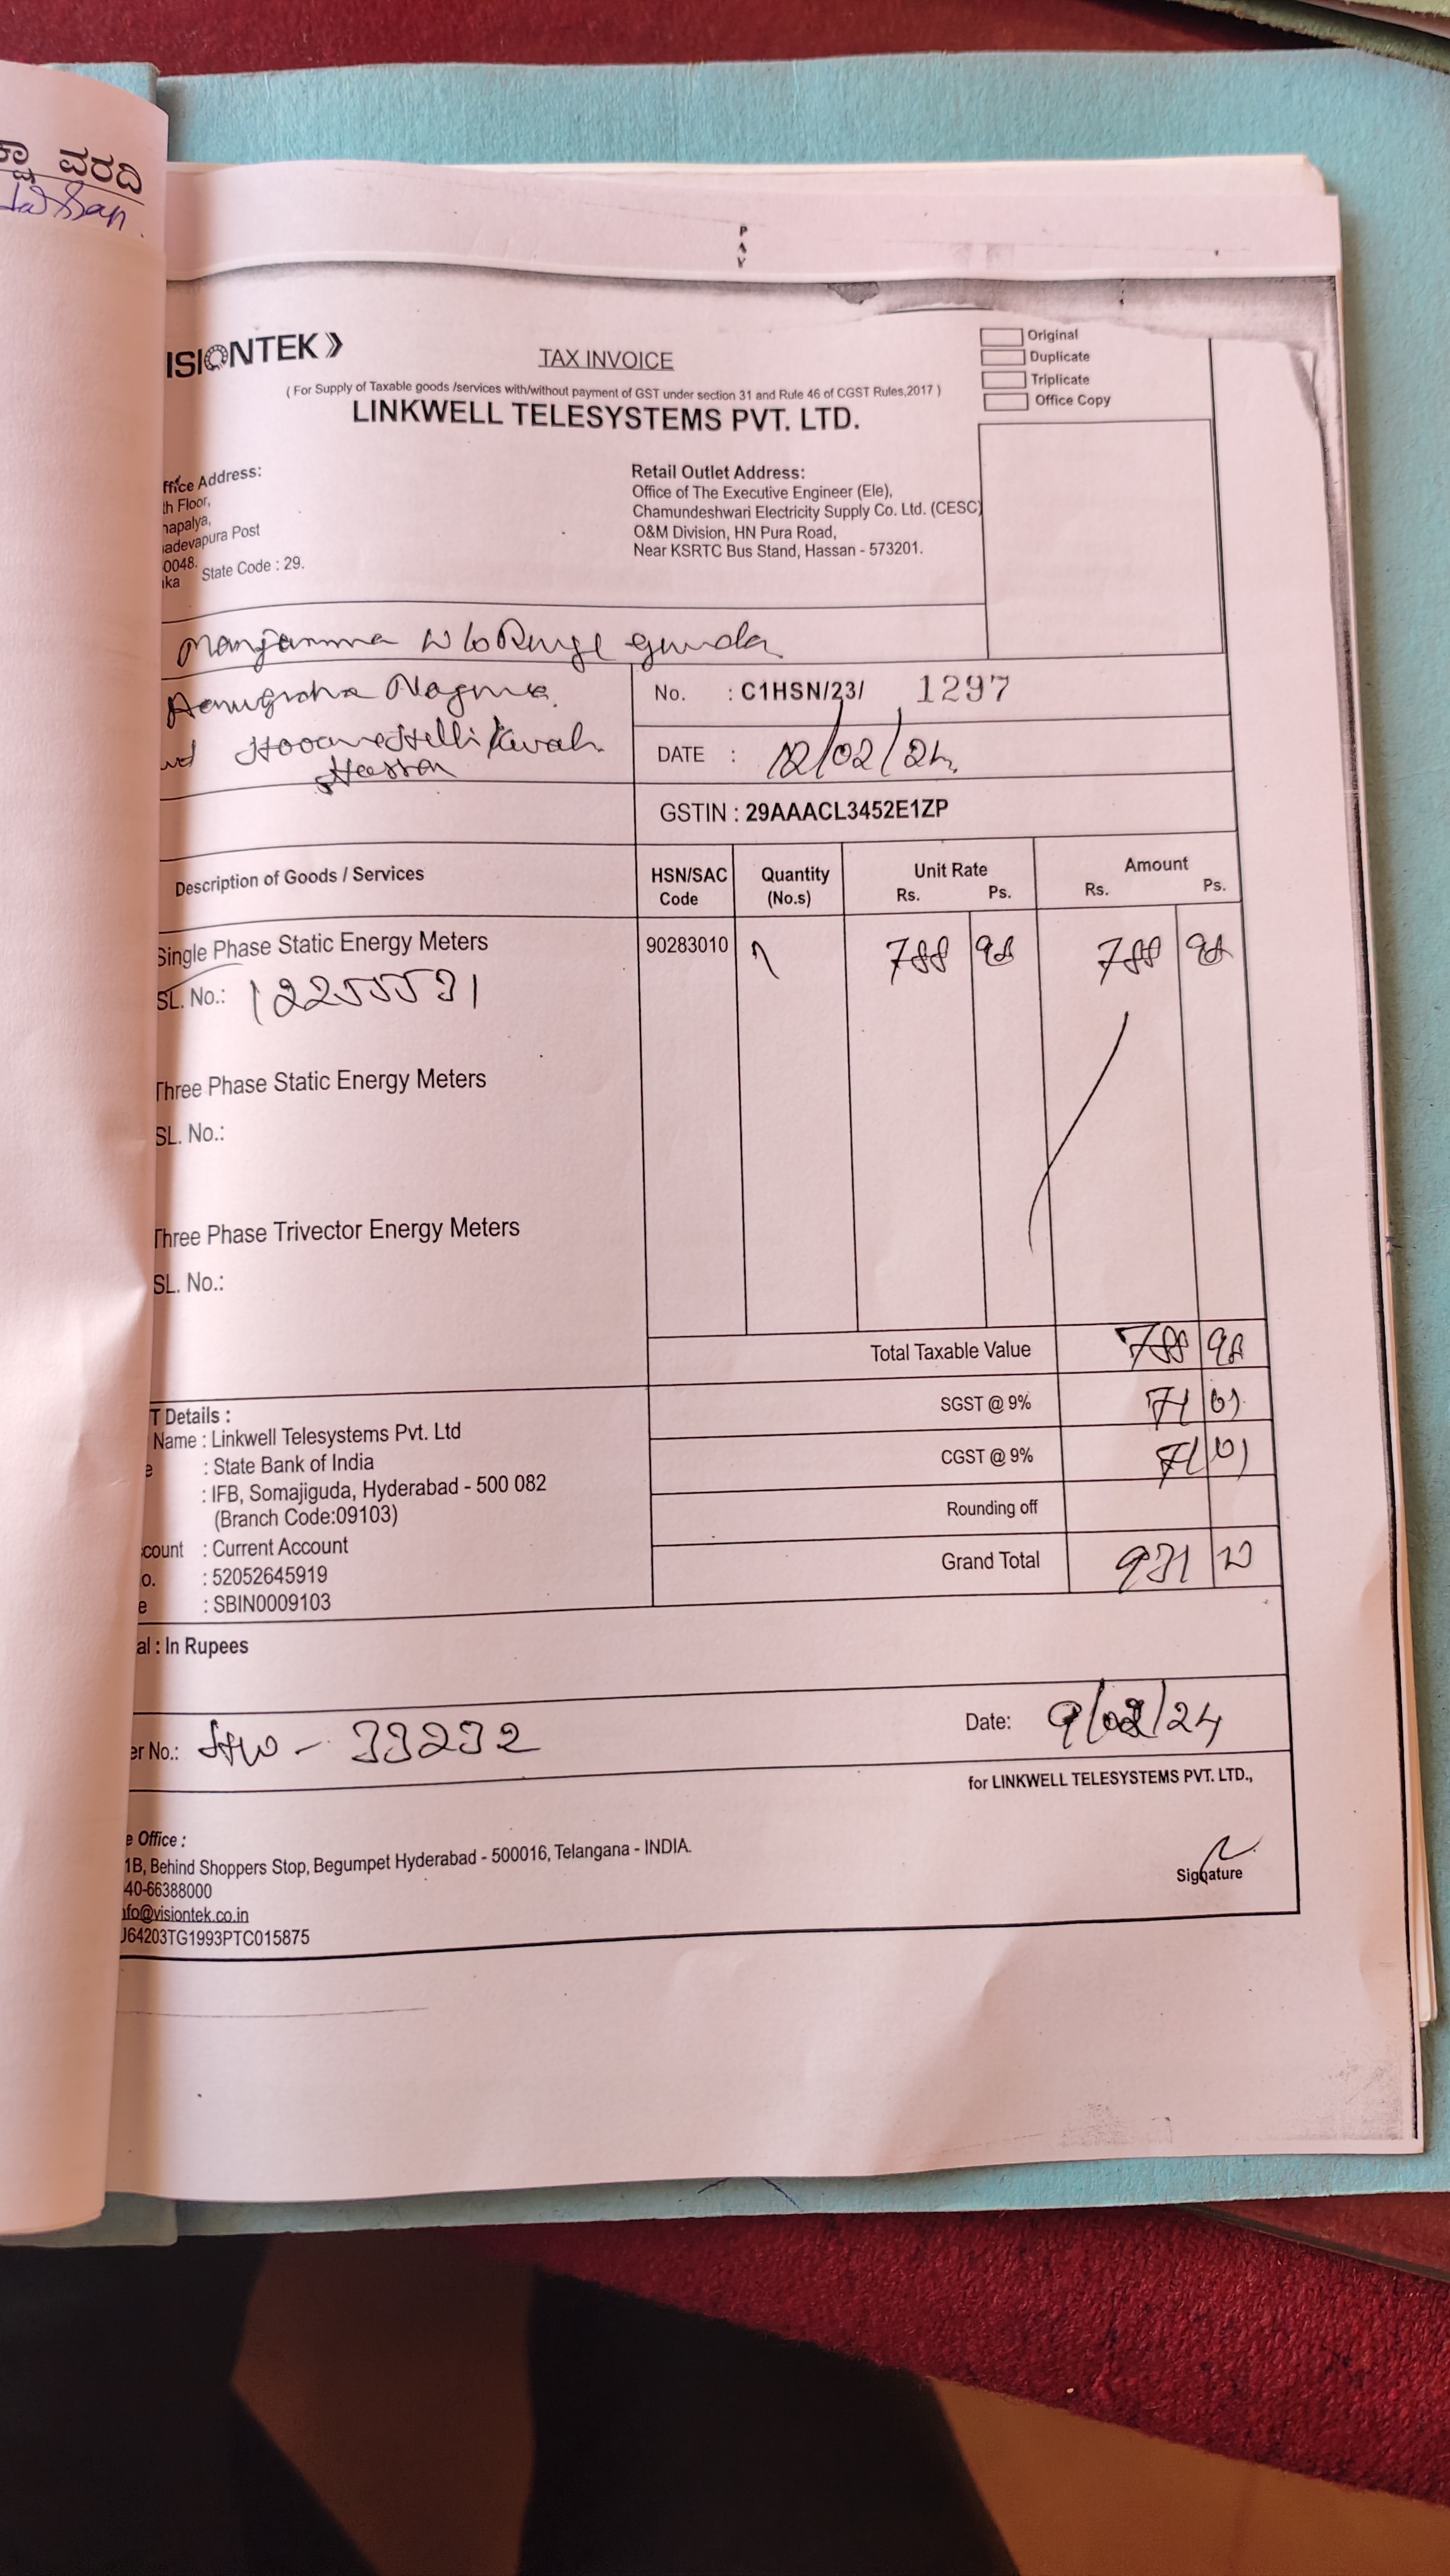 ವರದಿ
P
A
Y
ISIONTEK
TAX INVOICE
Original
Duplicate
Triplicate
Office Copy
( For Supply of Taxable goods /services with/without payment of GST under section 31 and Rule 46 of CGST Rules,2017 )
LINKWELL TELESYSTEMS PVT. LTD.
ffice Address:
th Floor,
napalya,
adevapura Post
0048.
ka State Code : 29.
Retail Outlet Address:
Office of The Executive Engineer (Ele),
Chamundeshwari Electricity Supply Co. Ltd. (CESC)
O&M Division, HN Pura Road,
Near KSRTC Bus Stand, Hassan - 573201.
Manjamma W/o gowda
No. : C1HSN/23/ 1297
Hassan
DATE : 12/02/24
GSTIN : 29AAACL3452E1ZP
Description of Goods / Services
HSN/SAC Code
Quantity (No.s)
Unit Rate Rs. Ps.
Amount Rs. Ps.
Single Phase Static Energy Meters 90283010 1 788 98 788 98
SL. No.: 12255531
Three Phase Static Energy Meters
SL. No.:
Three Phase Trivector Energy Meters
SL. No.:
Total Taxable Value 788 98
SGST @ 9% 71 01
CGST @ 9% 71 01
Rounding off
Grand Total 931
T Details :
Name : Linkwell Telesystems Pvt. Ltd
e : State Bank of India
: IFB, Somajiguda, Hyderabad - 500 082
(Branch Code:09103)
count : Current Account
o. : 52052645919
e : SBIN0009103
al : In Rupees
er No.: 33232
Date: 9/02/24
for LINKWELL TELESYSTEMS PVT. LTD.,
e Office :
1B, Behind Shoppers Stop, Begumpet Hyderabad - 500016, Telangana - INDIA.
40-66388000
nfo@visiontek.co.in
U64203TG1993PTC015875
Signature